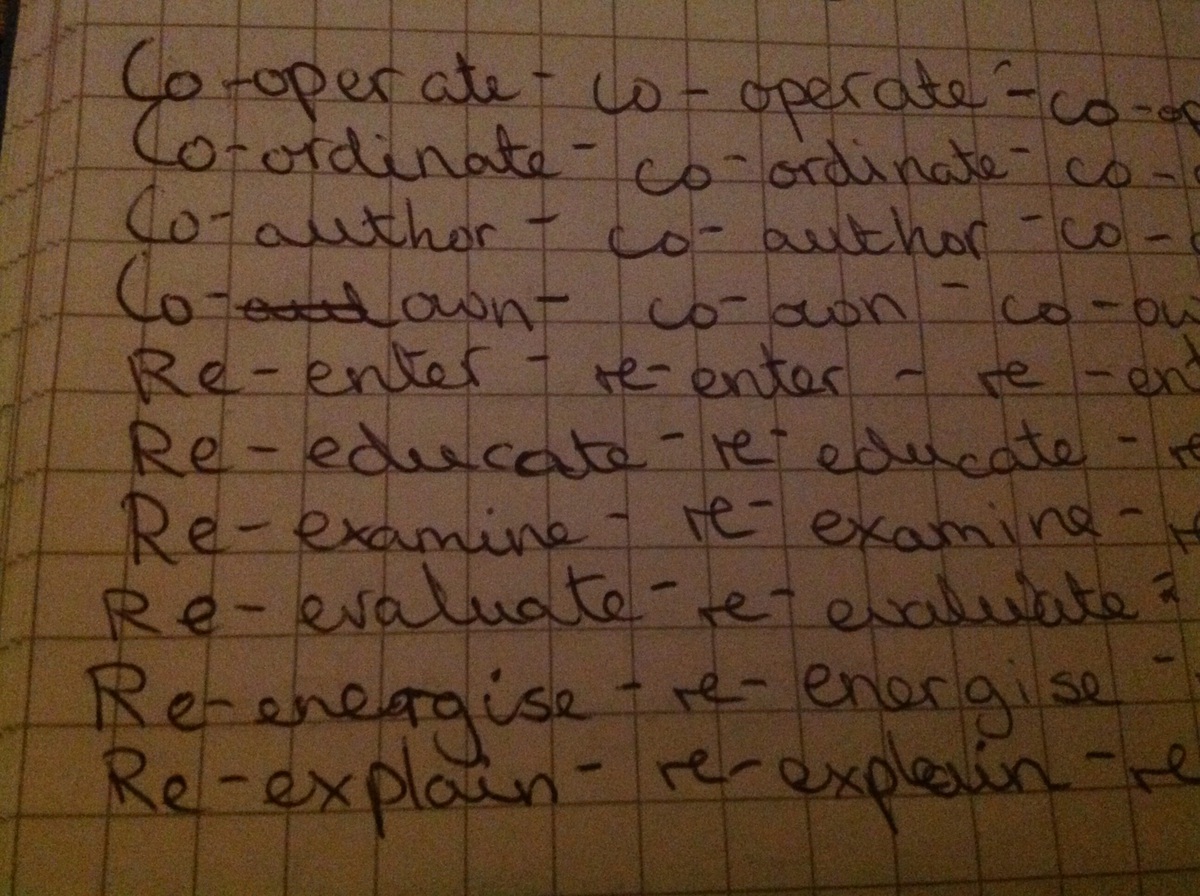 Co-operate - co-operate - co-op
Co-ordinate - co-ordinate - co-
Co-author - co-author - co-
Co- own - co-own - co-ow
Re-enter - re-enter - re-ent
Re-educate - re-educate - re
Re-examine - re-examine - re
Re-evaluate - re-evaluate -
Re-energise - re-energise -
Re-explain - re-explain - re